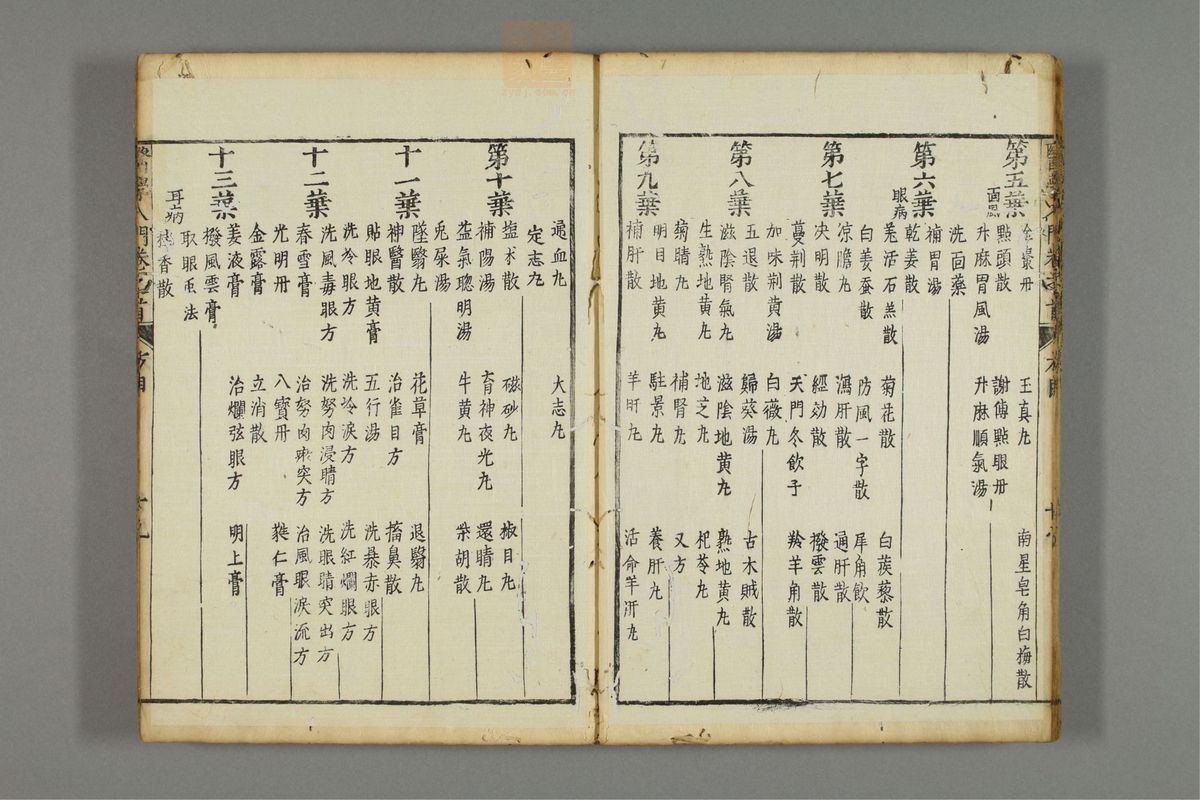 醫學入門卷之首 方目
第五葉 丹 玉真丸 南星皂角白梅散
面風 點頭散 謝傳點眼丹
升麻胃風湯 升麻順氣湯
洗面藥
補胃湯
第六葉
眼病 乾姜散
羗活石羔散 菊花散 白蒺藜散
白姜蚕散 防風一字散 犀角飲
凉膽丸 瀉肝散 通肝散
第七葉
决明散 經効散 撥雲散
蔓荆散 天門冬飲子 羚羊角散
加味荆黄湯 白薇丸
第八葉
五退散 歸葵湯 古木賊散
滋陰腎氣丸 滋陰地黄丸 熟地黄丸
生熟地黄丸 地芝丸 杞苓丸
菊睛丸 補腎丸 又方
第九葉
明目地黄丸 駐景丸 養肝丸
補肝散 羊肝丸 活命羊肝丸
通血丸 大志丸
定志丸
第十葉
塩术散 磁砂丸 椒目丸
補陽湯 育神夜光丸 還睛丸
益氣聰明湯 牛黄丸 柴胡散
兎屎湯
十一葉
墜翳丸 花草膏 退翳丸
神醫散 治雀目方 搐鼻散
貼眼地黄膏 五行湯 洗暴赤眼方
洗冷眼方 洗冷淚方 洗紅爛眼方
十二葉
洗風毒眼方 洗努肉浸睛方 洗眼睛突出方
春雪膏 治努肉瘀突方 治風眼淚流方
光明丹 八寶丹 蕤仁膏
金露膏 立消散
姜液膏 治爛弦眼方 明上膏
十三葉
撥風雲膏
取眼虫法
耳病 香散
醫學入門卷之首 方目 十九